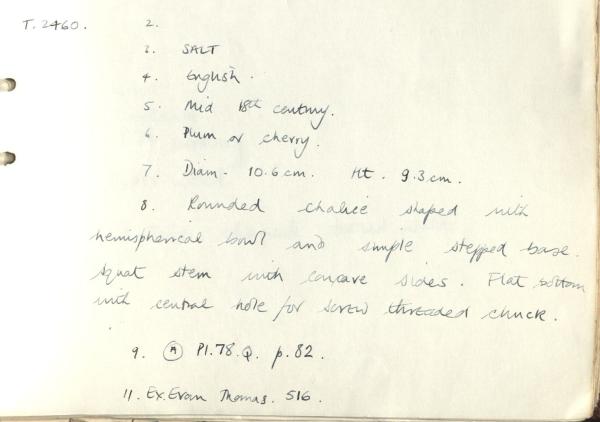 T. 2460. 2.
3. SALT
4. English.
5. Mid 18th century.
6. Plum or cherry.
7. Diam - 10.6 cm. Ht. 9.3 cm.
8. Rounded chalice shaped with
hemispherical bowl and simple stepped base.
Squat stem with concave sides. Flat bottom
with central hole for screw threaded chuck.
9. (A) Pl. 78. Q. p. 82.
11. Ex. Evan Thomas. 516.